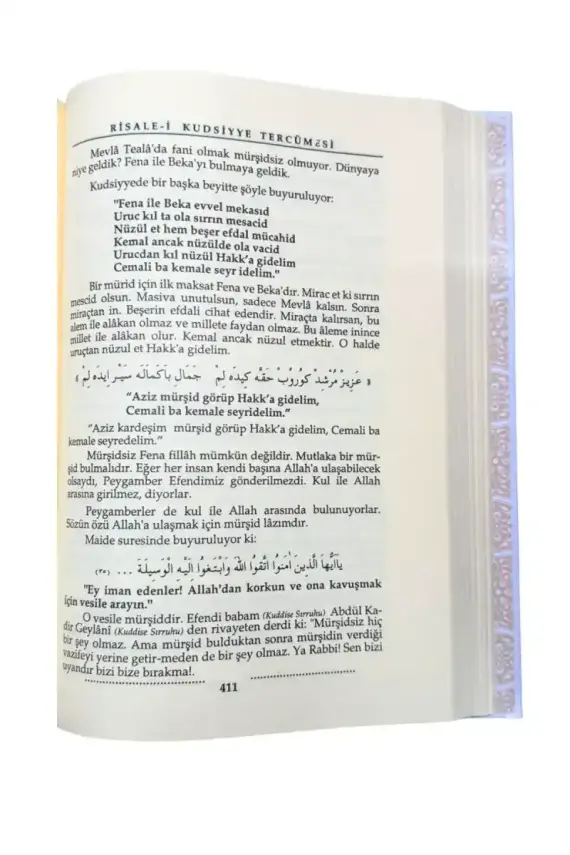 RİSALE-İ KUDSİYYE TERCÜMESİ
Mevlâ Tealâ'da fani olmak mürşidsiz olmuyor. Dünyaya
niye geldik? Fena ile Beka'yı bulmaya geldik.
Kudsiyyede bir başka beyitte şöyle buyuruluyor:
"Fena ile Beka evvel mekasıd
Uruc kıl ta ola sırrın mesacid
Nüzül et hem beşer efdal mücahid
Kemal ancak nüzülde ola vacid
Urucdan kıl nüzül Hakk'a gidelim
Cemali ba kemale seyr idelim."
Bir mürid için ilk maksat Fena ve Beka'dır. Mirac et ki sırrın
mescid olsun. Masiva unutulsun, sadece Mevlâ kalsın. Sonra
miraçtan in. Beşerin efdali cihat edendir. Miraçta kalırsan, bu
alem ile alâkan olmaz ve millete faydan olmaz. Bu âleme inince
millet ile alâkan olur. Kemal ancak nüzul etmektir. O halde
uruçtan nüzul et Hakk'a gidelim.
« عَزِيزْ مُرْشِدْ كُورُوبْ حَقَّه كِيدَه لِمْ جَمَالِ بَاكَمَالَه سَيْر اِيدَه لِمْ »
"Aziz mürşid görüp Hakk'a gidelim,
Cemali ba kemale seyridelim."
"Aziz kardeşim mürşid görüp Hakk'a gidelim, Cemali ba
kemale seyredelim."
Mürşidsiz Fena fillâh mümkün değildir. Mutlaka bir mür-
şid bulmalıdır. Eğer her insan kendi başına Allah'a ulaşabilecek
olsaydı, Peygamber Efendimiz gönderilmezdi. Kul ile Allah
arasına girilmez, diyorlar.
Peygamberler de kul ile Allah arasında bulunuyorlar.
Sözün özü Allah'a ulaşmak için mürşid lâzımdır.
Maide suresinde buyuruluyor ki:
يَااَيُّهَا الَّذِينَ اٰمَنُوا اتَّقُوا اللّٰهَ وَابْتَغُوا اِلَيْهِ الْوَسِيلَةَ ... (٣٥)
"Ey iman edenler! Allah'dan korkun ve ona kavuşmak
için vesile arayın."
O vesile mürşiddir. Efendi babam (Kuddise Sırruhu) Abdül Ka-
dir Geylânî (Kuddise Sırruhu) den rivayeten derdi ki: "Mürşidsiz hiç
bir şey olmaz. Ama mürşid bulduktan sonra mürşidin verdiği
vazifeyi yerine getir-meden de bir şey olmaz. Ya Rabbi! Sen bizi
uyandır bizi bize bırakma!.
411